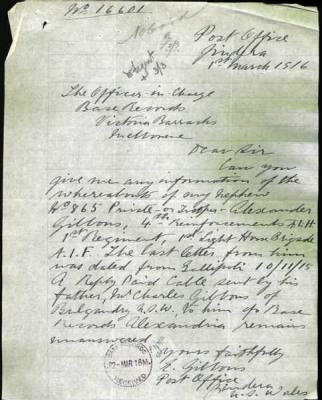 No 16601
Post Office
Jindera
1st March 1916
The Officer in Charge
Base Records
Victoria Barracks
Melbourne
Dear Sir
Can you
give me any information of the
whereabouts of my nephew
No 865 Private or Trooper Alexander
Gibbons, 4th Reinforcements ALH
1st Regiment, 1st Light Horse Brigade
A.I.F. The last letter from him
was dated from Gallipoli 10/11/15
A Reply Paid Cable sent by his
father, Mr Charles Gibbons of
Bulgandry N.S.W. to him c/o Base
Records Alexandria remains
unanswered
Yours faithfully
Gibbons
Post Office
Jindera
N.S. Wales
2-MAR 1916
RECEIVED